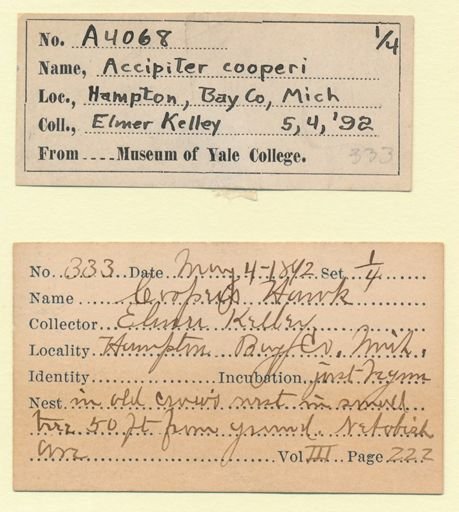 No. A4068 1/4
Name, Accipiter cooperi
Loc., Hampton, Bay Co, Mich
Coll., Elmer Kelley 5, 4, '92
From .... Museum of Yale College. 333
No. 333 Date May, 4-1892 Set 1/4
Name Cooper's Hawk
Collector Elmer Kelley
Locality Hampton Bay Co, Mich,
Identity Incubation, just begun
Nest in old crow's nest in small
tree 50 ft from ground. Nebobish
Ave Vol III Page 222